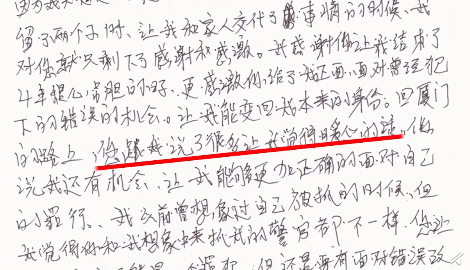 因为我
留了两个小时、让我和家人交代了事情的时候、我
对您就只剩下了感谢和感激。我感谢你让我结束了
4年提心吊胆的日子、更感激你给了我正面面对曾经犯
下的错误的机会。让我能变回我本来的身份。回厦门
的路上、您跟我说了很多让我觉得暖心的话。你
说我还有机会、让我能够更加正确的面对自己
的罪行。我以前曾想象过自己被抓的时候、但
我觉得你和我想象中来抓我的警官都不一样、您让
一个罪犯、但还是要有面对错误改